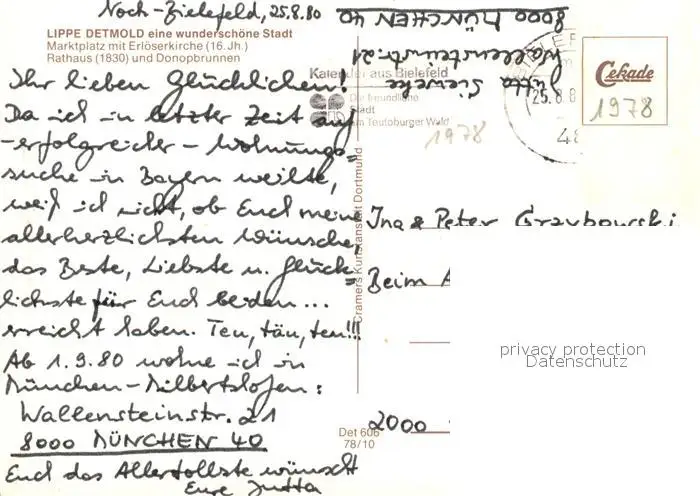 Noch-Bielefeld, 25.8.80
LIPPE DETMOLD eine wunderschöne Stadt
Marktplatz mit Erlöserkirche (16. Jh.)
Rathaus (1830) und Donopbrunnen
Ihr lieben Glücklichen!
Da ich in letzter Zeit auf
-erfolgreicher- Wohnungs=
suche in Bayern weilte,
weiß ich nicht, ob Euch meine
allerherzlichsten Wünsche,
das Beste, Liebste u. Glück=
lichste für Euch beiden...
erreicht haben. Teu, täu, teu!!!
Ab 1.9.80 wohne ich in
München-Milbertshofen:
Wallensteinstr. 21
8000 MÜNCHEN 40
Euch das Allertollste wünscht
Eure Jutta
Jutta Sieweke
Wallensteinstr. 21
8000 MÜNCHEN 40
Kalender aus Bielefeld
Die freundliche
Stadt
am Teutoburger Wald
25.8.8
48
1978
Cekade
1978
Cramers Kunstanstalt Dortmund
Ina & Peter Grzybowski
Beim
2000
Det 606
78/10
privacy protection
Datenschutz